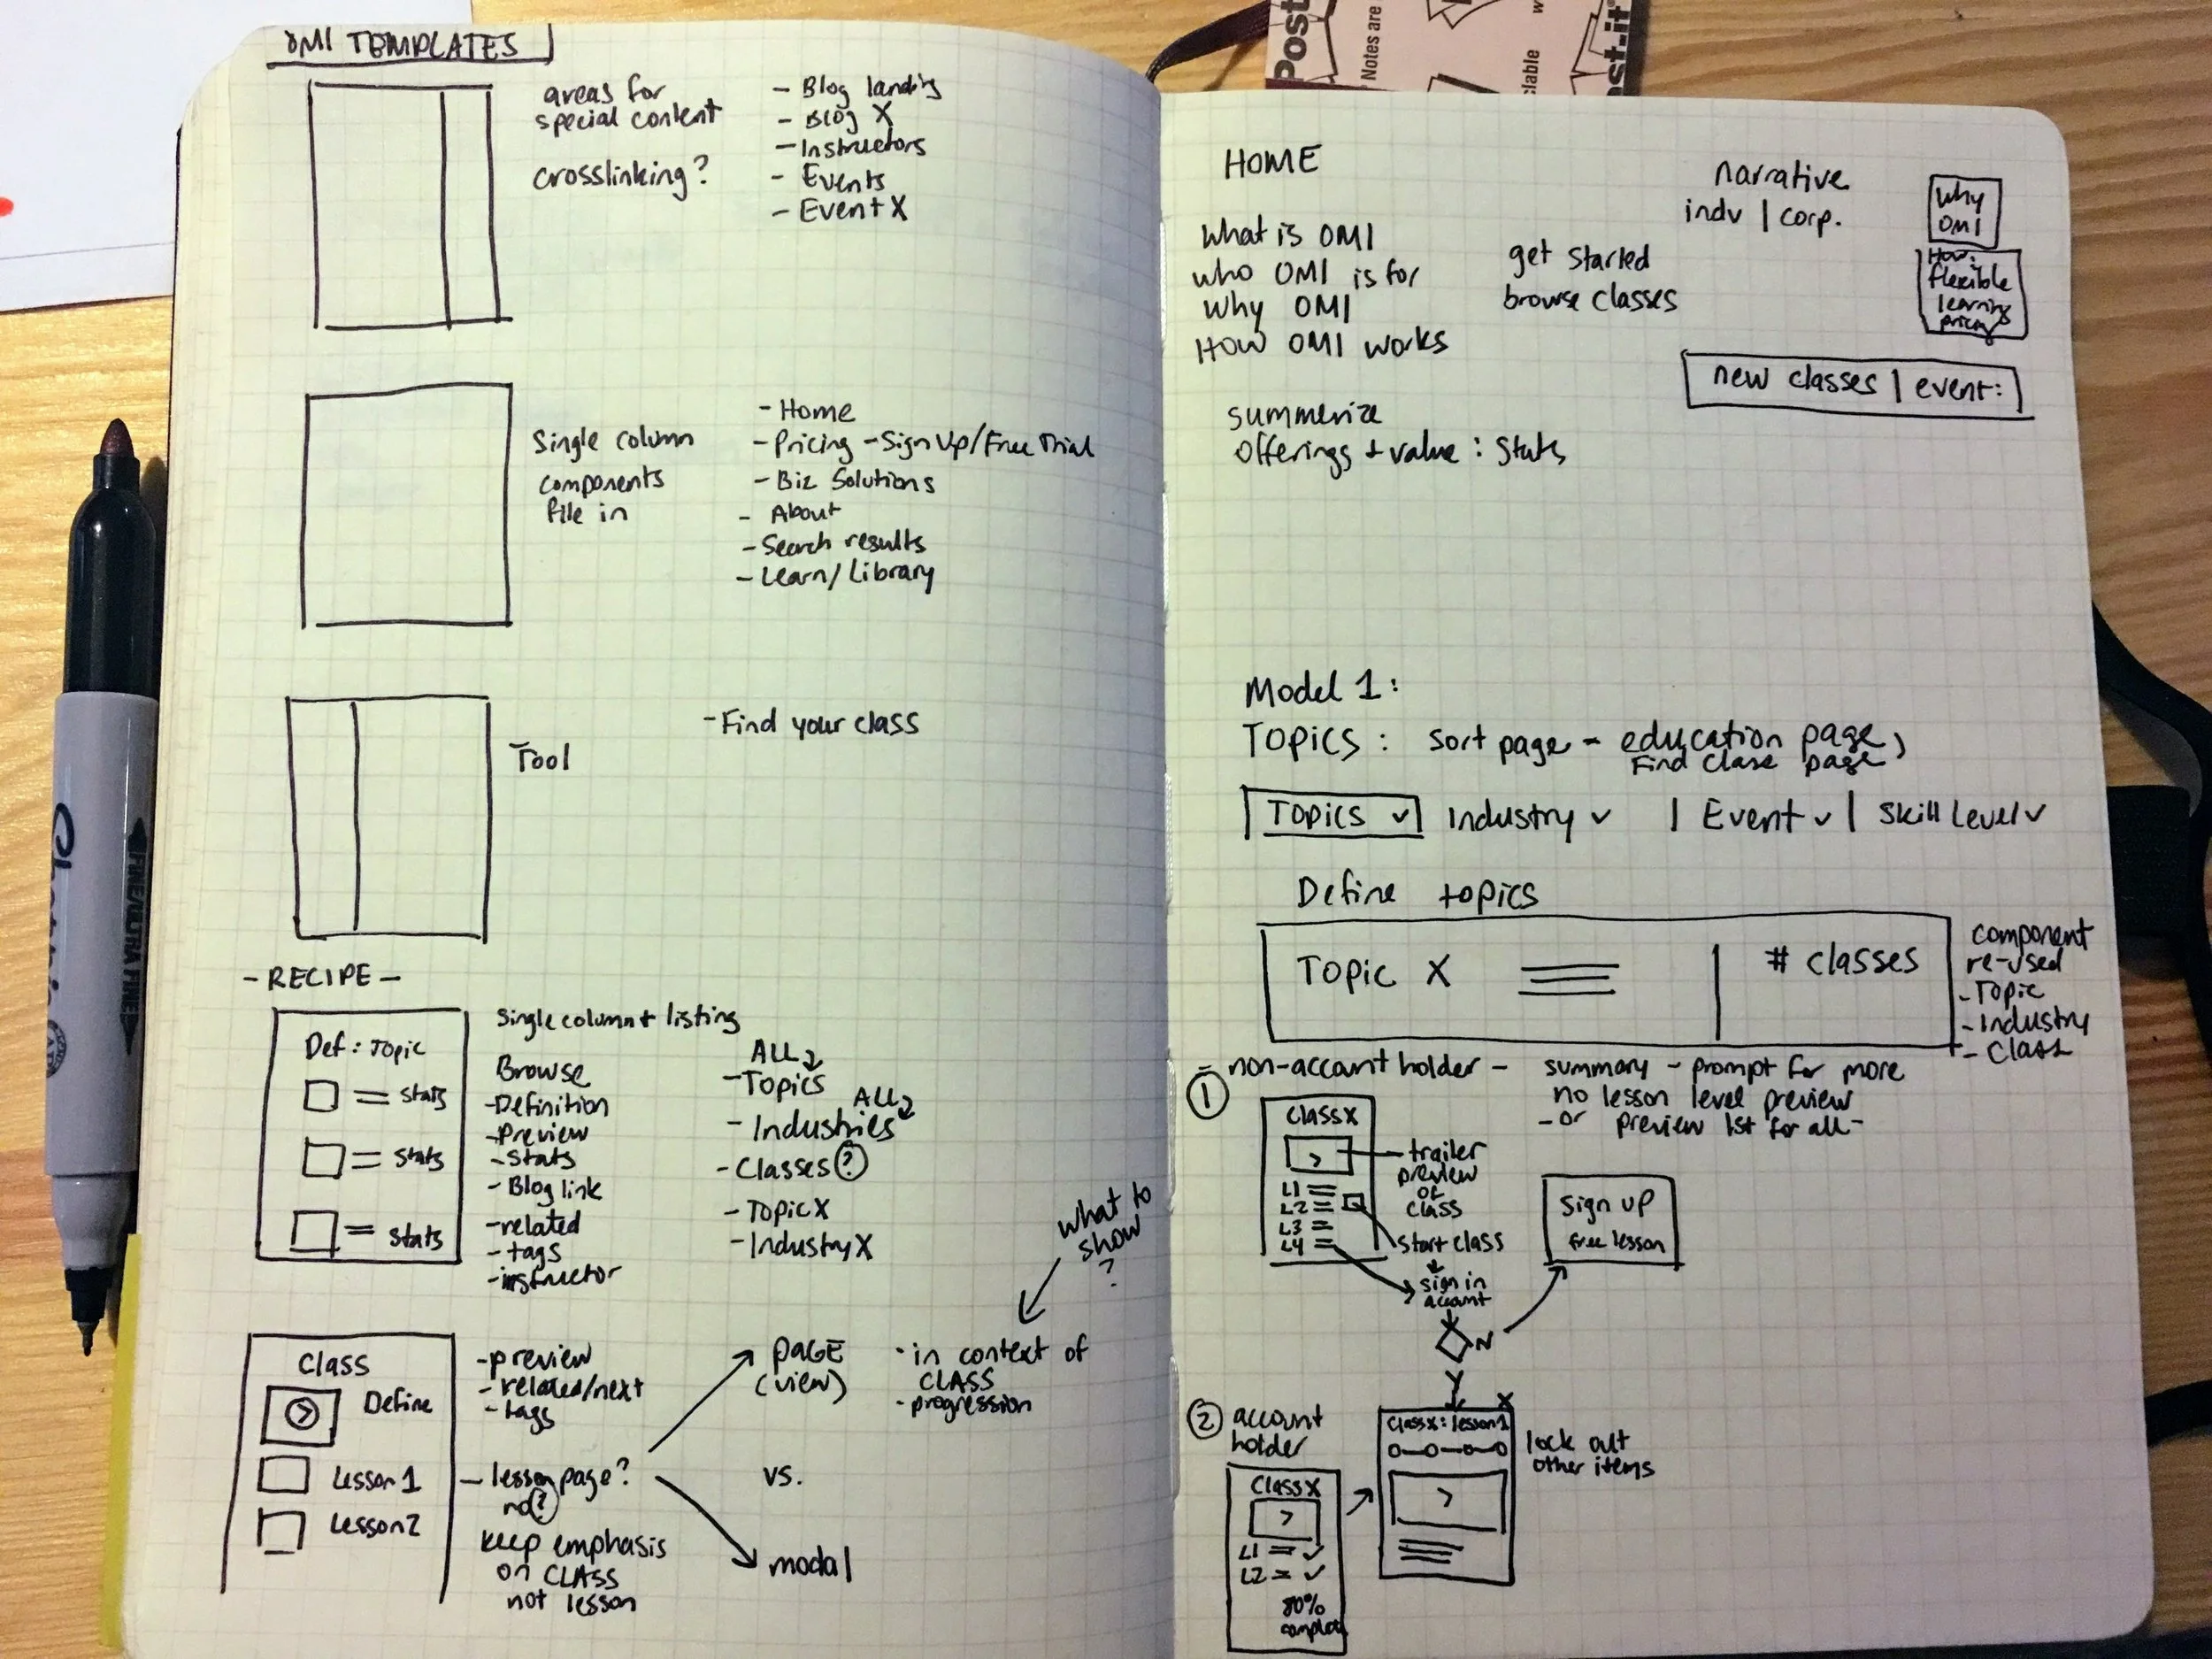 OMI TEMPLATES
areas for
special content
crosslinking?
- Blog landing
- Blog X
- Instructors
- Events
- Event X
Single column
components
file in
- Home
- Pricing - Sign Up/Free Trial
- Biz Solutions
- About
- Search results
- Learn/Library
Tool
- Find your class
- RECIPE -
Def: Topic
= stats
= stats
= stats
Single column + listing
Browse
- Definition
- Preview
- stats
- Blog link
- related
- tags
- instructor
ALL
- Topics
ALL
- Industries
- Classes ?
- Topic X
- Industry X
what to
show
?
Class
Define
Lesson 1
Lesson 2
- preview
- related/next
- tags
- lesson page?
no ?
keep emphasis
on CLASS
not lesson
PAGE
(view)
vs.
modal
· in context of
CLASS
· progression
Post
Notes are
clable
st-it
HOME
narrative
indv | corp.
Why
OMI
How:
flexible
learning
pricing
What is OMI
who OMI is for
Why OMI
How OMI works
get started
browse classes
new classes | event:
summerize
offerings + value : stats
Model 1:
TOPICS: sort page - education page,
Find class page,
| Topics ✓ | Industry ✓ | Event ✓ | Skill Level ✓
Define topics
Topic X
# classes
component
re-used
- Topic
- Industry
- Class
- non-account holder - summary - prompt for more
no lesson level preview
- or preview 1st for all -
1
Class X
L1
L2
L3
L4
trailer
preview
of
class
start class
sign in
account
N
Y
sign up
free lesson
2 account
holder
Class X
L1 = ✓
L2 = ✓
80%
complete
X
Class X: lesson 1
lock out
other items
FINE/ULTRA FINE